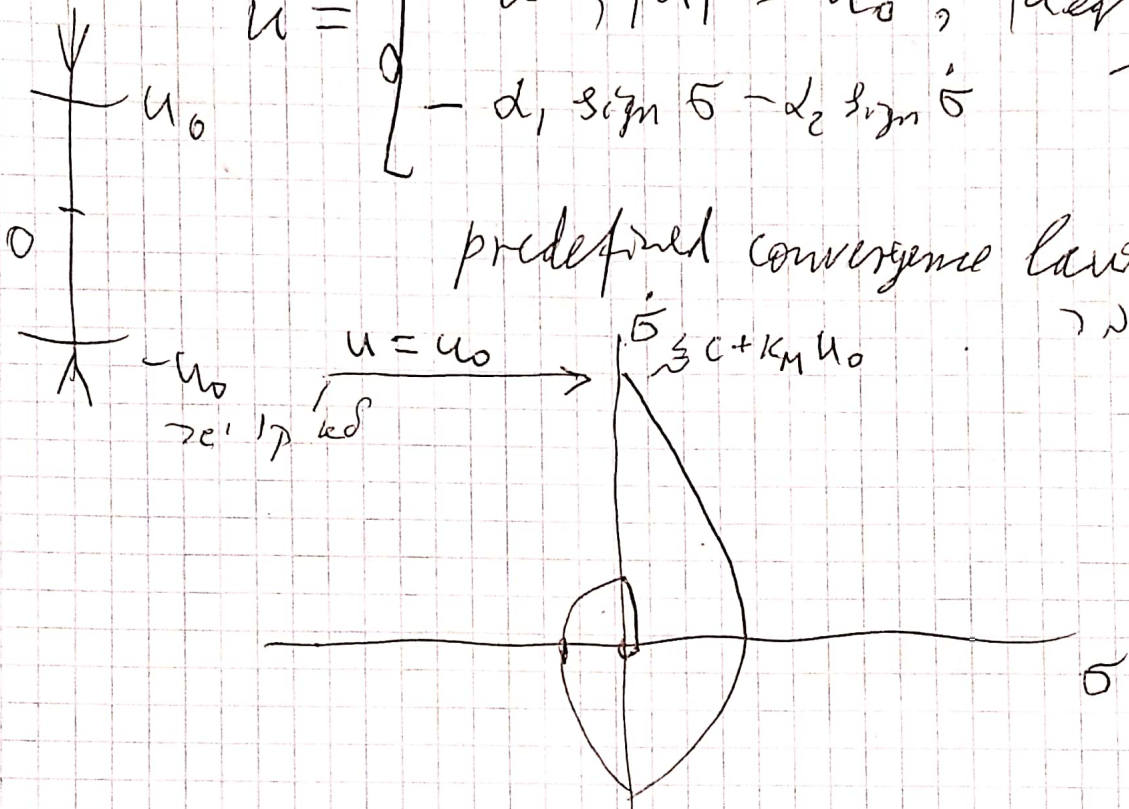 u =
u₀
- α₁ sign σ - α₂ sign σ̇
0
predefined convergence law
-u₀
u = u₀
σ̇
≤ C + K_M u₀
σ